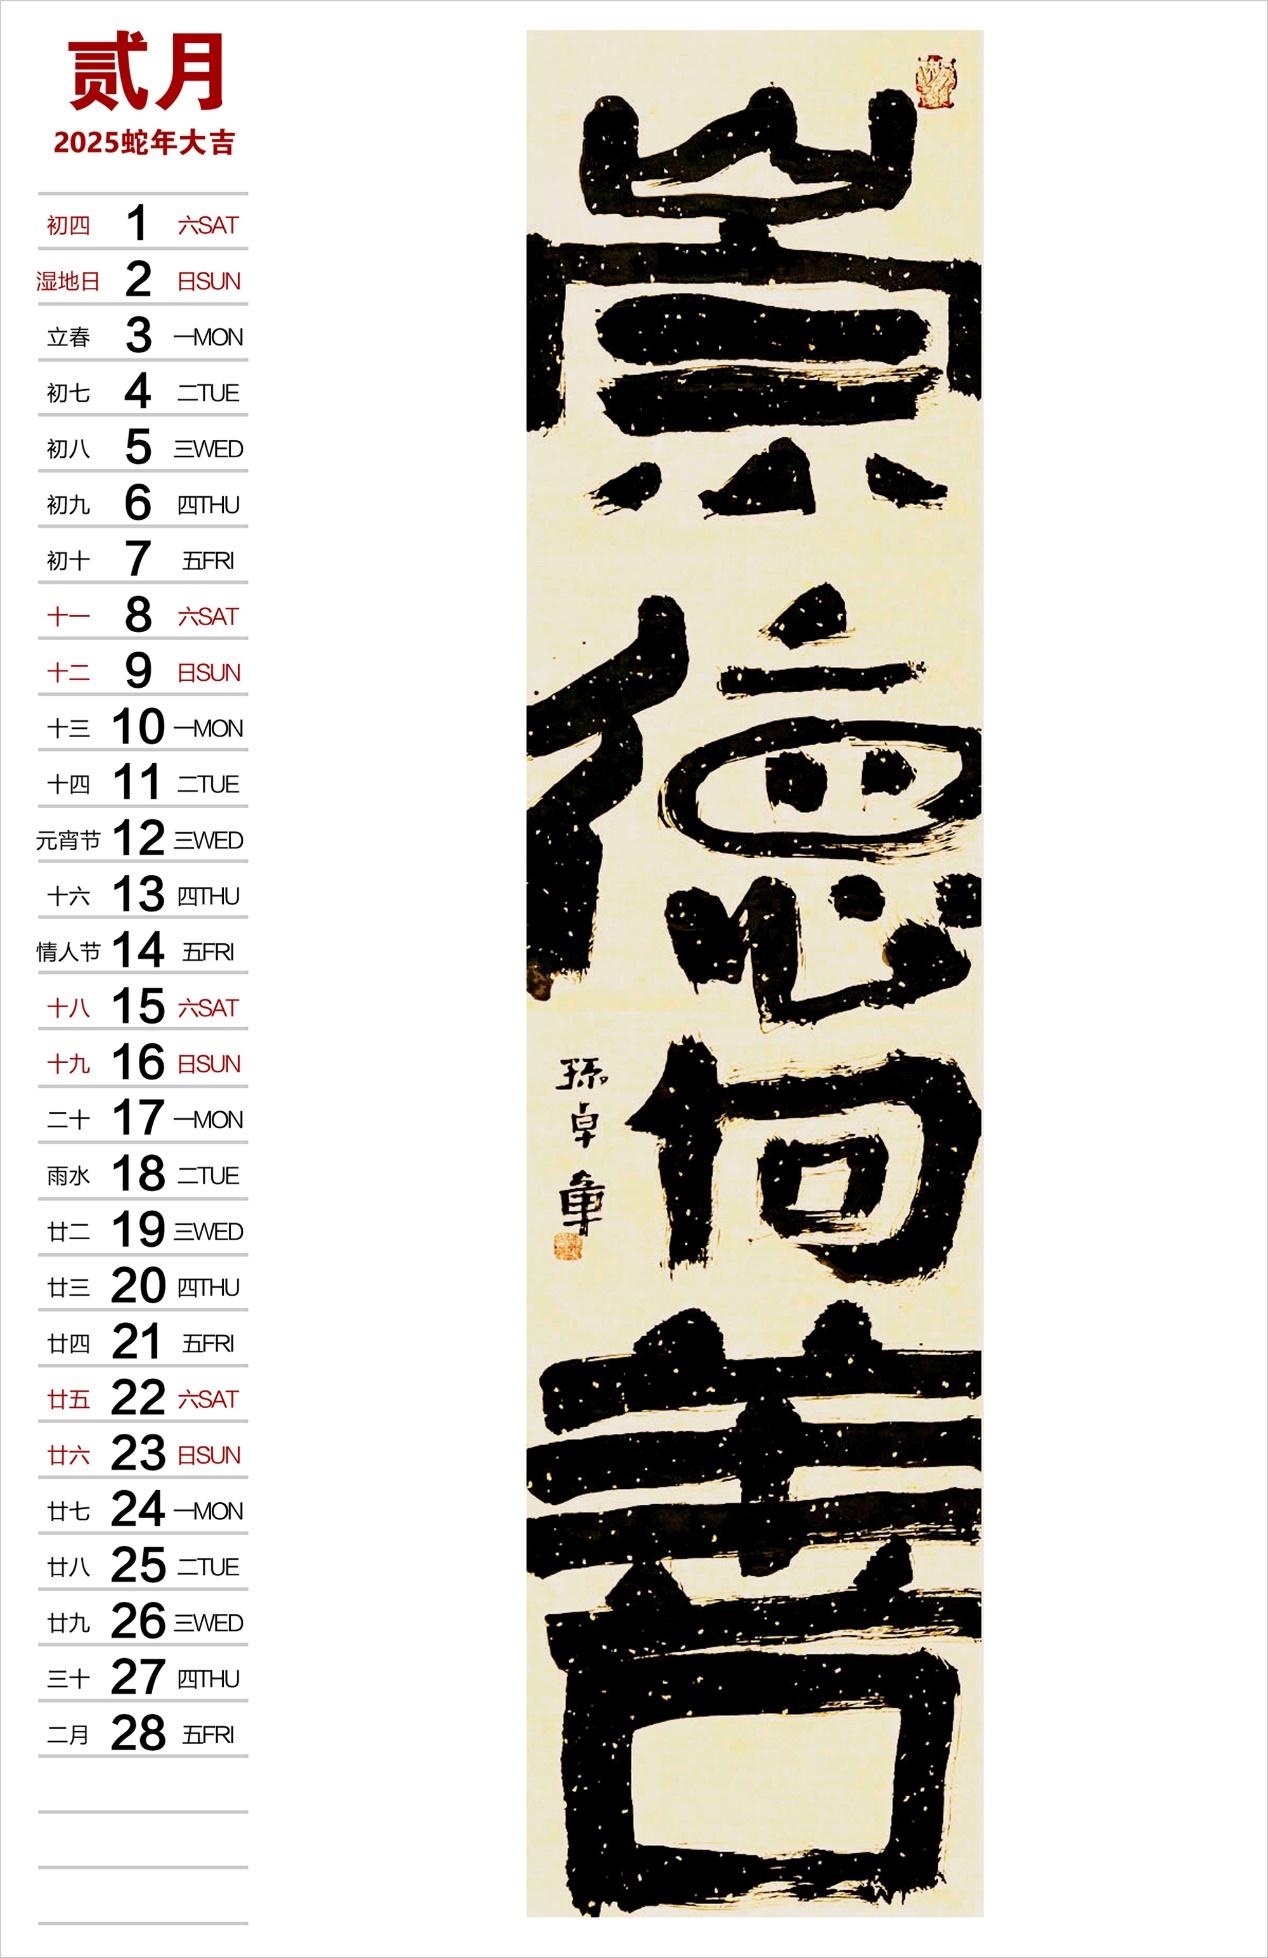 贰月
2025蛇年大吉
初四 1 六SAT
湿地日 2 日SUN
立春 3 一MON
初七 4 二TUE
初八 5 三WED
初九 6 四THU
初十 7 五FRI
十一 8 六SAT
十二 9 日SUN
十三 10 一MON
十四 11 二TUE
元宵节 12 三WED
十六 13 四THU
情人节 14 五FRI
十八 15 六SAT
十九 16 日SUN
二十 17 一MON
雨水 18 二TUE
廿二 19 三WED
廿三 20 四THU
廿四 21 五FRI
廿五 22 六SAT
廿六 23 日SUN
廿七 24 一MON
廿八 25 二TUE
廿九 26 三WED
三十 27 四THU
二月 28 五FRI
崇德向善
孫卓章